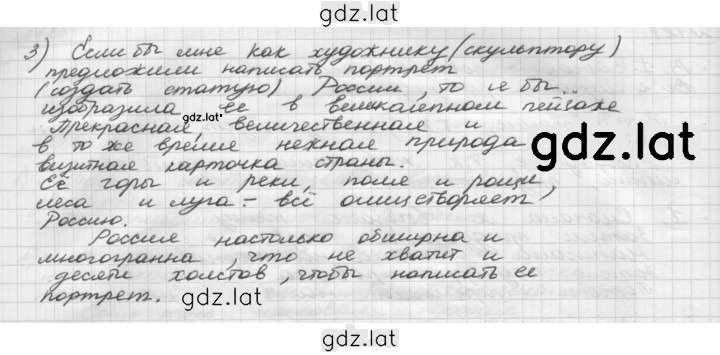 gdz.lat
3) Если бы мне как художнику (скульптору)
предложили написать портрет
(создать статую) России, то я бы..
изобразила ее в великолепном пейзаже
gdz.lat
Прекрасная, величественная и
в то же время нежная природа
gdz.lat
визитная карточка страны.
Её горы и реки, поля и рощи,
леса и луга – всё олицетворяет
Россию.
Россия настолько обширна и
многогранна, что не хватит и
десяти холстов, чтобы написать ее
портрет.
gdz.lat
gdz.lat